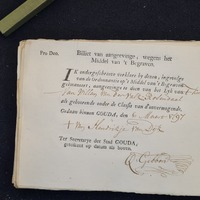 Pro Deo.
Billet van aangevinge, wegens het
Middel van 't Begraven.
IK ondergeschreven verklare by deezen, ingevolge
van de Ordonnantie op 't Middel van 't Begraven
geëmaneert, aangevinge te doen van het Lyk van
Jan Willem van der
als gehoorende onder de Classis van d'onvermogende.
Gedaan binnen GOUDA, den 6 Maart 1797
Hendrikje van Dyk
Ter Secretarye der Stad GOUDA,
getekent op datum als boven.